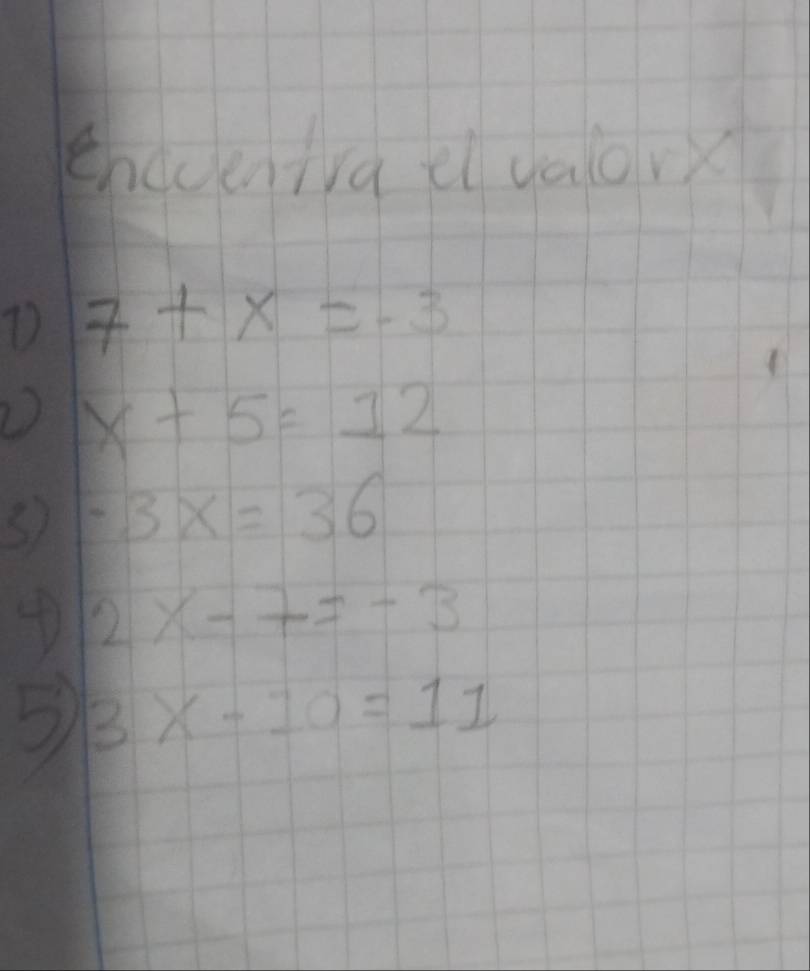 encuentra el valor X
1) 7 + x = -3
2) x + 5 = 12
3) -3x = 36
4) 2x - 7 = -3
5) 3x - 10 = 11